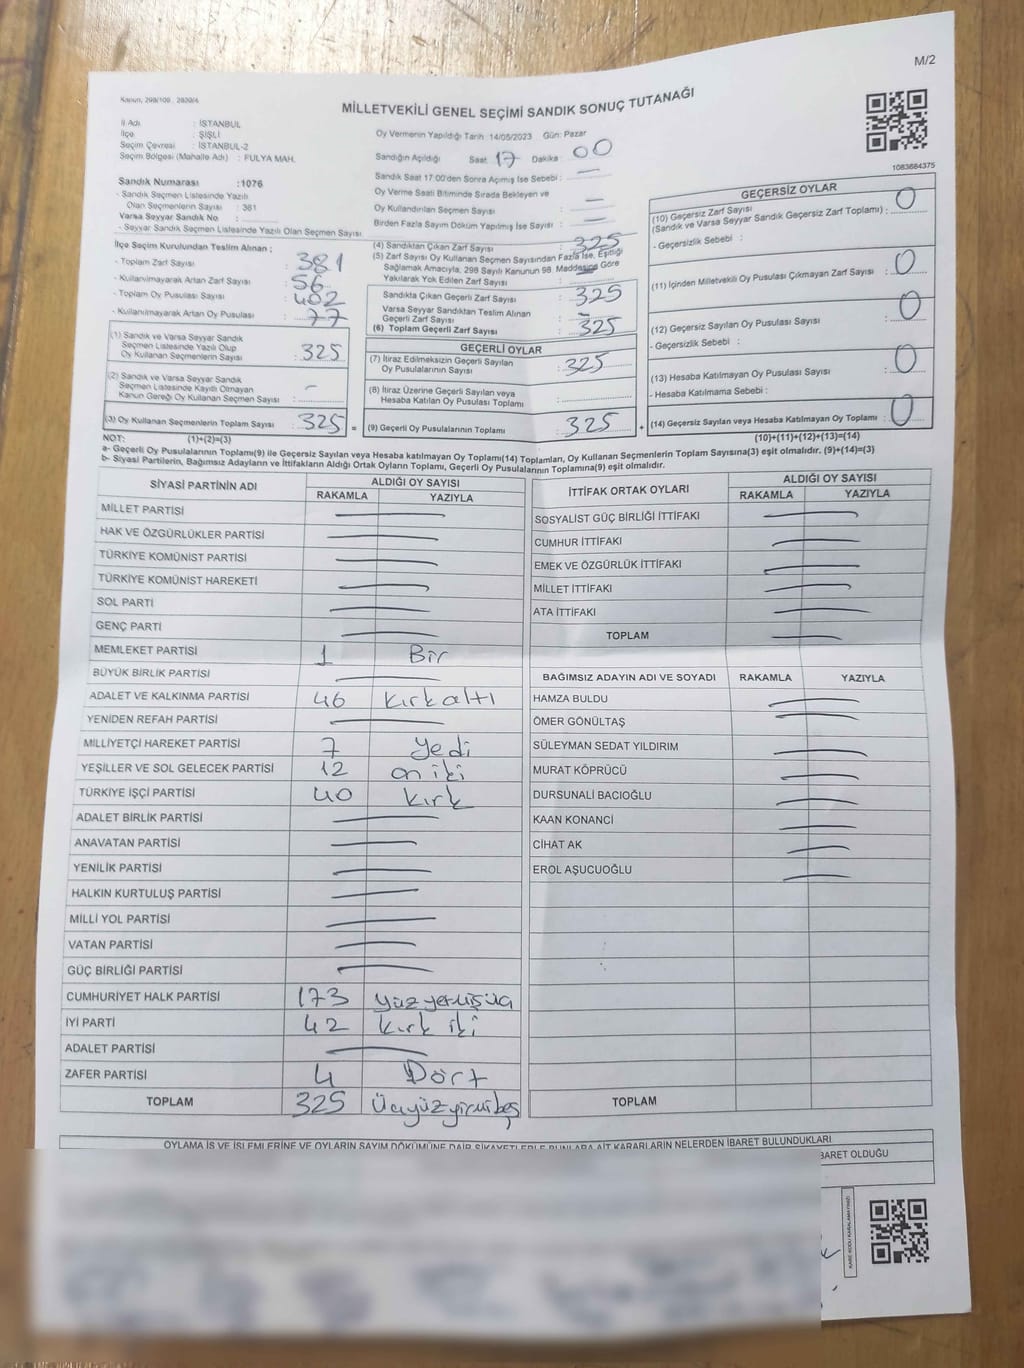 M/2
Kanun, 298/109 , 2839/4
MİLLETVEKİLİ GENEL SEÇİMİ SANDIK SONUÇ TUTANAĞI
1083684375
İl Adı : İSTANBUL
İlçe : ŞİŞLİ
Seçim Çevresi : İSTANBUL-2
Seçim Bölgesi (Mahalle Adı) : FULYA MAH.
Sandık Numarası :1076
- Sandık Seçmen Listesinde Yazılı
Olan Seçmenlerin Sayısı : 381
Varsa Seyyar Sandık No :
- Seyyar Sandık Seçmen Listesinde Yazılı Olan Seçmen Sayısı
İlçe Seçim Kurulundan Teslim Alınan ;
- Toplam Zarf Sayısı : 381
- Kullanılmayarak Artan Zarf Sayısı : 56
- Toplam Oy Pusulası Sayısı : 402
- Kullanılmayarak Artan Oy Pusulası : 77
(1) Sandık ve Varsa Seyyar Sandık
Seçmen Listesinde Yazılı Olup
Oy Kullanan Seçmenlerin Sayısı : 325
(2) Sandık ve Varsa Seyyar Sandık
Seçmen Listesinde Kayıtlı Olmayan
Kanun Gereği Oy Kullanan Seçmen Sayısı : -
(3) Oy Kullanan Seçmenlerin Toplam Sayısı : 325 =
Oy Vermenin Yapıldığı Tarih 14/05/2023 Gün: Pazar
Sandığın Açıldığı Saat : 17 Dakika : 00
Sandık Saat 17:00'den Sonra Açımış İse Sebebi : —
Oy Verme Saati Bitiminde Sırada Bekleyen ve
Oy Kullandırılan Seçmen Sayısı : —
Birden Fazla Sayım Döküm Yapılmış İse Sayısı : —
(4) Sandıktan Çıkan Zarf Sayısı : 325
(5) Zarf Sayısı Oy Kullanan Seçmen Sayısından Fazla İse, Eşitliği
Sağlamak Amacıyla, 298 Sayılı Kanunun 98. Maddesine Göre
Yakılarak Yok Edilen Zarf Sayısı :
Sandıkta Çıkan Geçerli Zarf Sayısı : 325
Varsa Seyyar Sandıktan Teslim Alınan
Geçerli Zarf Sayısı : -
(6) Toplam Geçerli Zarf Sayısı : 325
GEÇERLİ OYLAR
(7) İtiraz Edilmeksizin Geçerli Sayılan
Oy Pusulalarının Sayısı : 325
(8) İtiraz Üzerine Geçerli Sayılan veya
Hesaba Katılan Oy Pusulası Toplamı :
(9) Geçerli Oy Pusulalarının Toplamı : 325 +
GEÇERSİZ OYLAR
(10) Geçersiz Zarf Sayısı
(Sandık ve Varsa Seyyar Sandık Geçersiz Zarf Toplamı) : 0
- Geçersizlik Sebebi :
(11) İçinden Milletvekili Oy Pusulası Çıkmayan Zarf Sayısı : 0
(12) Geçersiz Sayılan Oy Pusulası Sayısı : 0
- Geçersizlik Sebebi :
(13) Hesaba Katılmayan Oy Pusulası Sayısı : 0
- Hesaba Katılmama Sebebi :
(14) Geçersiz Sayılan veya Hesaba Katılmayan Oy Toplamı : 0
NOT: (1)+(2)=(3) (10)+(11)+(12)+(13)=(14)
a- Geçerli Oy Pusulalarının Toplamı(9) ile Geçersiz Sayılan veya Hesaba katılmayan Oy Toplamı(14) Toplamları, Oy Kullanan Seçmenlerin Toplam Sayısına(3) eşit olmalıdır. (9)+(14)=(3)
b- Siyasi Partilerin, Bağımsız Adayların ve İttifakların Aldığı Ortak Oyların Toplamı, Geçerli Oy Pusulalarının Toplamına(9) eşit olmalıdır.
SİYASİ PARTİNİN ADI ALDIĞI OY SAYISI
RAKAMLA YAZIYLA
MİLLET PARTİSİ —
HAK VE ÖZGÜRLÜKLER PARTİSİ —
TÜRKİYE KOMÜNİST PARTİSİ —
TÜRKİYE KOMÜNİST HAREKETİ —
SOL PARTİ —
GENÇ PARTİ —
MEMLEKET PARTİSİ 1 Bir
BÜYÜK BİRLİK PARTİSİ —
ADALET VE KALKINMA PARTİSİ 46 Kırkaltı
YENİDEN REFAH PARTİSİ —
MİLLİYETÇİ HAREKET PARTİSİ 7 Yedi
YEŞİLLER VE SOL GELECEK PARTİSİ 12 on iki
TÜRKİYE İŞÇİ PARTİSİ 40 Kırk
ADALET BİRLİK PARTİSİ —
ANAVATAN PARTİSİ —
YENİLİK PARTİSİ —
HALKIN KURTULUŞ PARTİSİ —
MİLLİ YOL PARTİSİ —
VATAN PARTİSİ —
GÜÇ BİRLİĞİ PARTİSİ —
CUMHURİYET HALK PARTİSİ 173 Yüzyetmişüç
İYİ PARTİ 42 Kırk iki
ADALET PARTİSİ —
ZAFER PARTİSİ 4 Dört
TOPLAM 325 Üçyüzyirmibeş
İTTİFAK ORTAK OYLARI ALDIĞI OY SAYISI
RAKAMLA YAZIYLA
SOSYALİST GÜÇ BİRLİĞİ İTTİFAKI —
CUMHUR İTTİFAKI —
EMEK VE ÖZGÜRLÜK İTTİFAKI —
MİLLET İTTİFAKI —
ATA İTTİFAKI —
TOPLAM —
BAĞIMSIZ ADAYIN ADI VE SOYADI RAKAMLA YAZIYLA
HAMZA BULDU —
ÖMER GÖNÜLTAŞ —
SÜLEYMAN SEDAT YILDIRIM —
MURAT KÖPRÜCÜ —
DURSUNALİ BACIOĞLU —
KAAN KONANCİ —
CİHAT AK —
EROL AŞUCUOĞLU —
TOPLAM
OYLAMA İŞ VE İŞLEMLERİNE VE OYLARIN SAYIM DÖKÜMÜNE DAİR ŞİKAYETLERLE BUNLARA AİT KARARLARIN NELERDEN İBARET BULUNDUKLARI
BARET OLDUĞU
KARE KODU KARALAMAYINIZ!